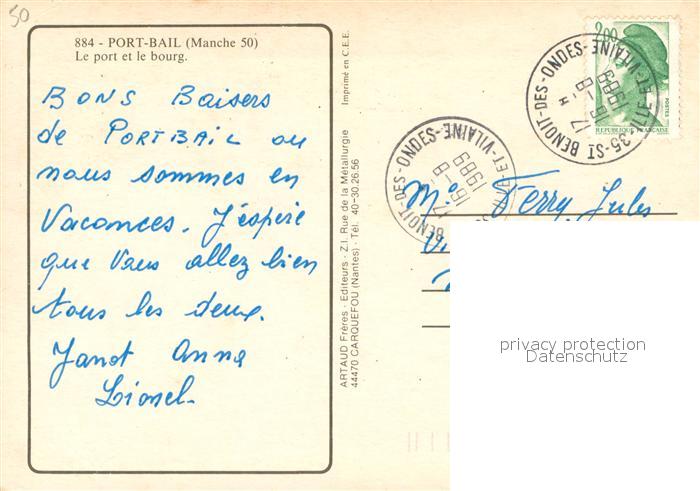 50
884 - PORT-BAIL (Manche 50)
Le port et le bourg.
BONS Baisers
de PORTBAIL ou
nous sommes en
Vacances. J'espère
que Vous allez bien
tous les deux.
Janot Anne
Lionel.
Imprimé en C.E.E.
ARTAUD Frères - Editeurs - Z.I. Rue de la Métallurgie
44470 CARQUEFOU (Nantes) - Tél. 40-30.26.56
2,00
POSTES
REPUBLIQUE FRANÇAISE
35-ST BENOIT-DES-ONDES-ILLE-ET-VILAINE
17 H
16 - 8
1989
BENOIT-DES-ONDES-ILLE-ET-VILAINE
16 - 8
1989
Ferry Jules
privacy protection
Datenschutz